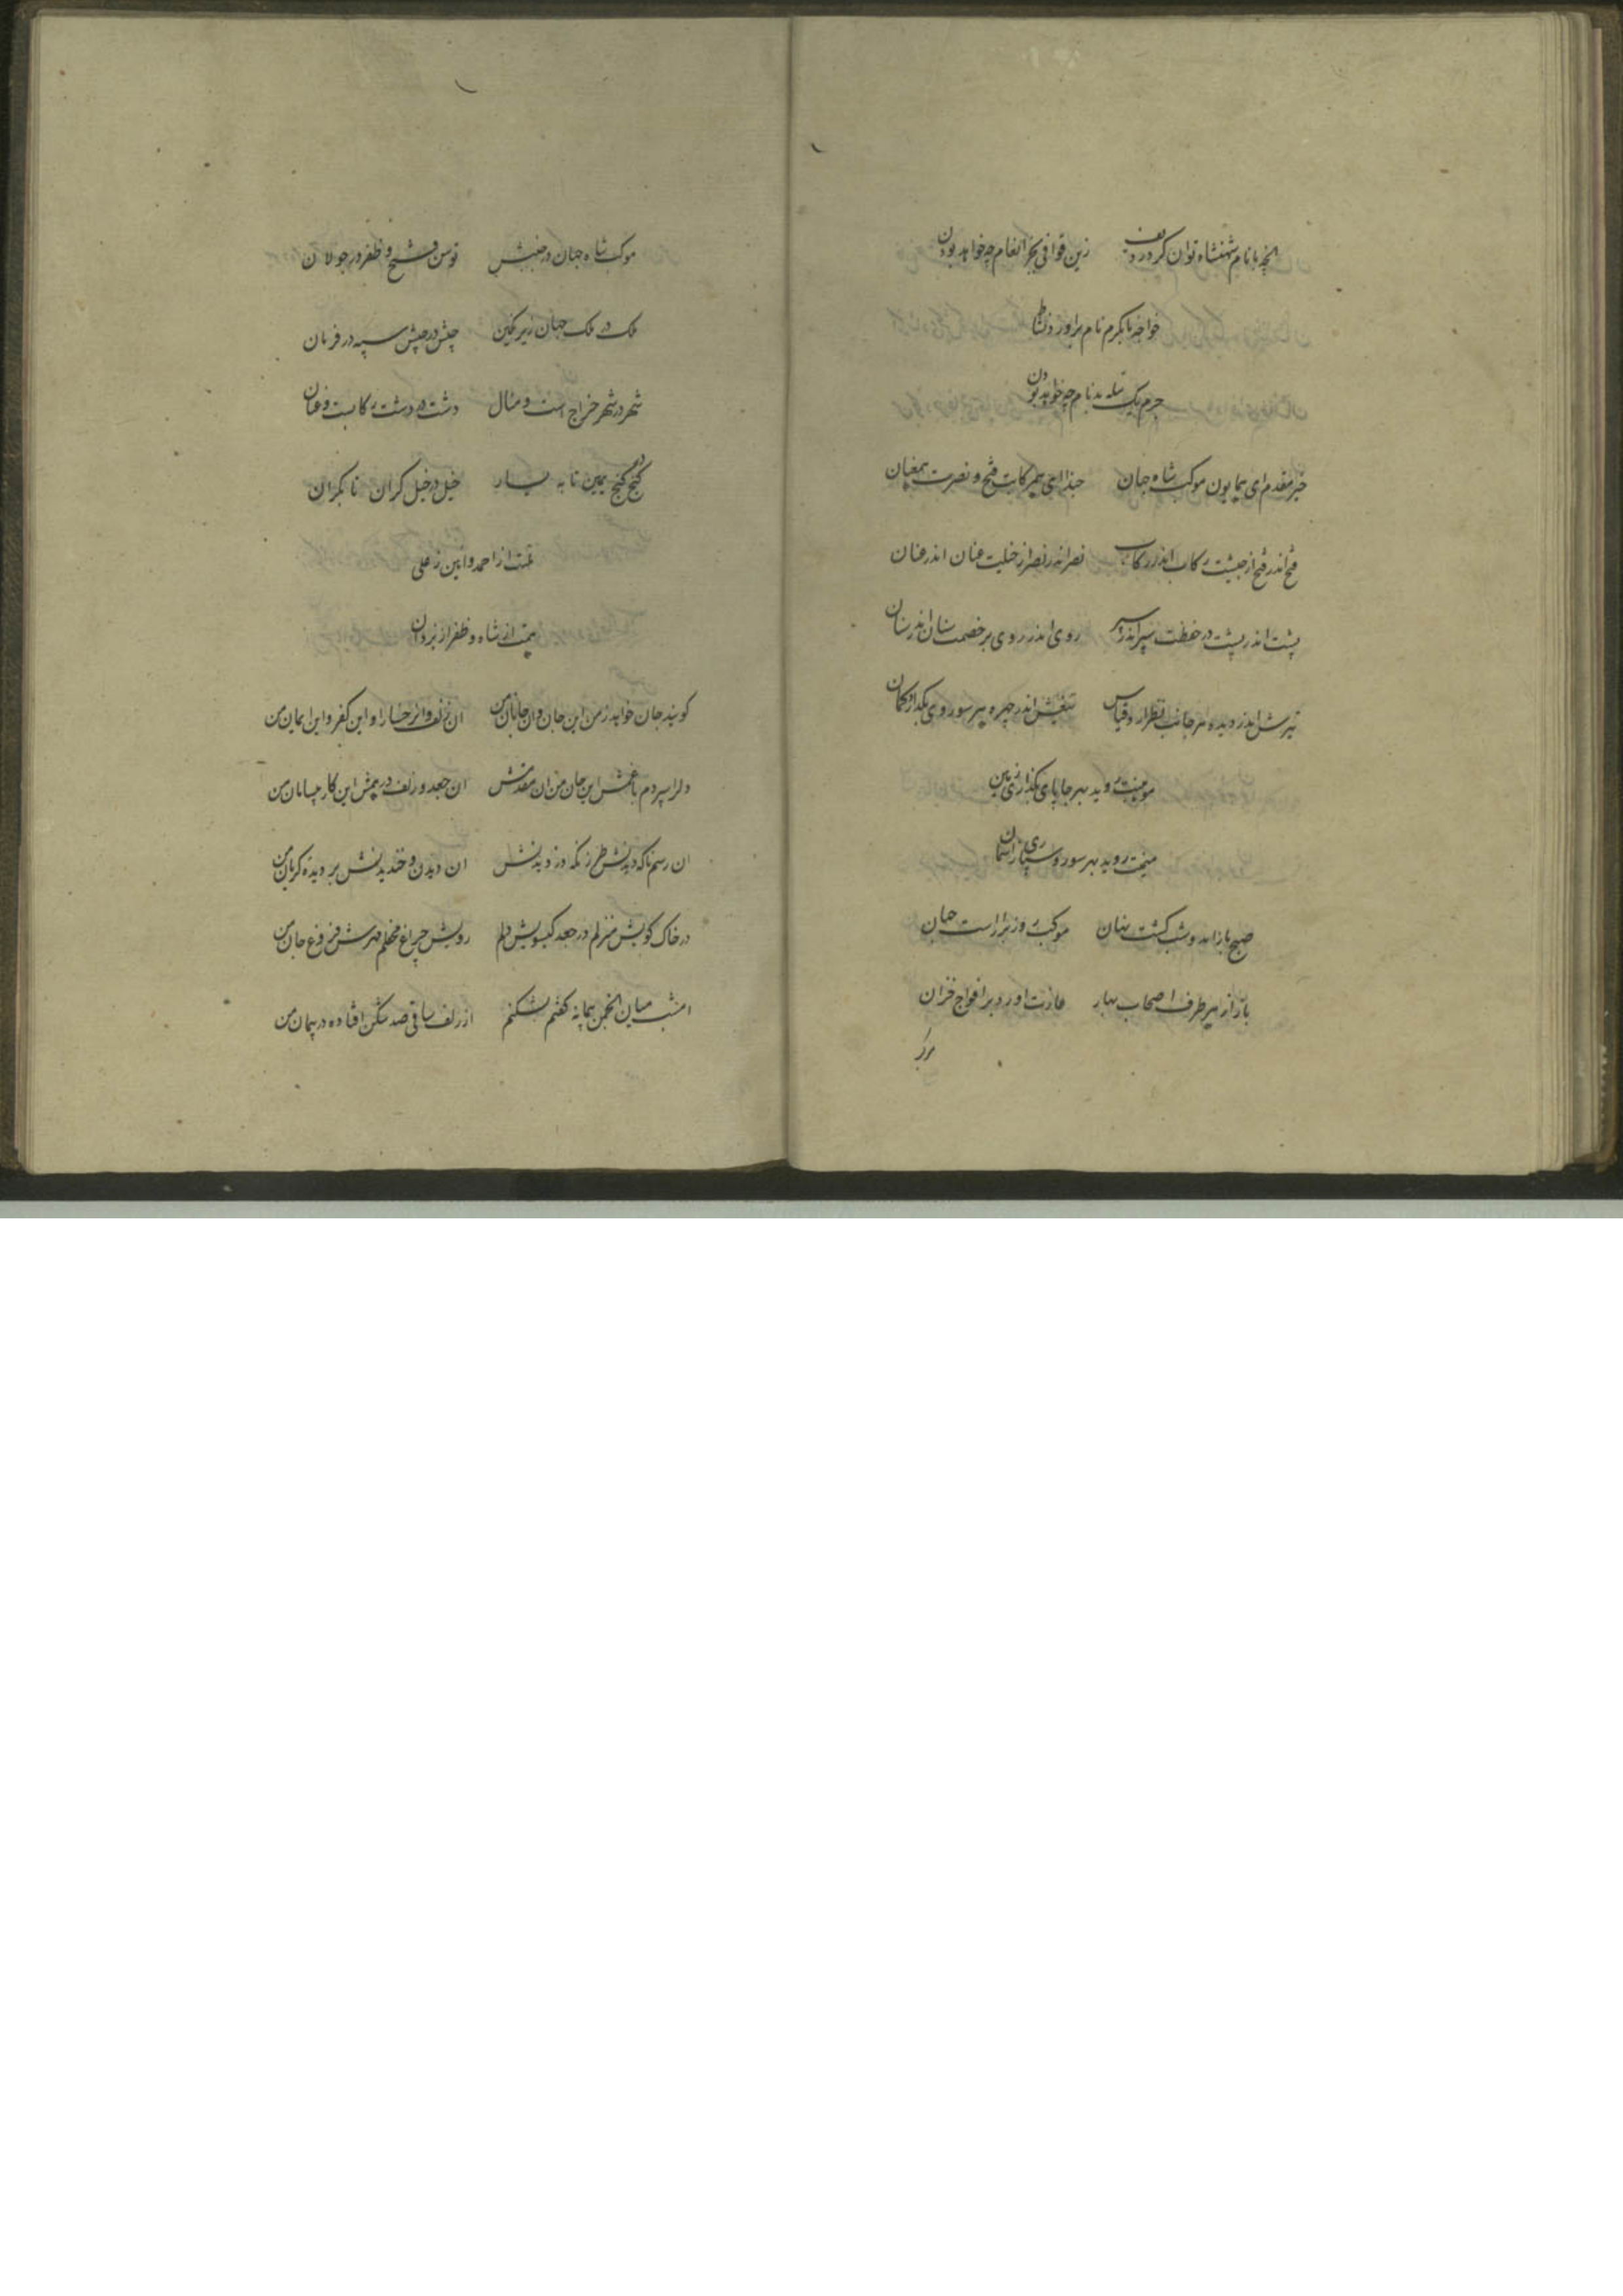 انچه با نام شهنشاه توان کرد ردیف زین قوافی بجز انعام چه خواهد بودن
خواجه با کرم نام برآورد ز نشاط
جرم یک بدنام چه خواهد بودن
خیر مقدم ای همایون موکب شاه جهان حبذا ای همرکابت فتح و نصرت همعنان
فتح اندر فتح از جیشت رکاب اندر رکاب نصر اندر نصر از خیلت عنان اندر عنان
پشت اندر پشت در حفظت سپر اندر سپر روی اندر روی بر خصمت سنان اندر سنان
تیرش اندر دیده هر جانب تیغش اندر چهره هر سو روی
موکبت روید بهر جا پای بگذاری زمین
روید بهر سو رو سپاری آسمان
صبح باز آمد و شب گشت نهان موکب روز براراست جهان
باز از هر طرف اصحاب بهار غارت اورد بر افواج خزان
موکب شاه جهان در جنبش توسن فتح و ظفر در جولان
ملک در ملک جهان زیر نگین جیش در جیش سپه در فرمان
شهر در شهر خراج است و منال دشت در دشت رکابست و عنان
گنج در گنج یمین تا به یسار خیل در خیل کران تا بکران
از احمد و این ز علی
همت از شاه و ظفر از یزدان
گویند جان خواهد ز من این جان و ان جانان من ان زلف و ان رخسار او این کفر و این ایمان من
دل را سپردم با غمش این جان من ان مقدمش ان جعد و زلف درهمش این کار بیسامان من
ان رسم ناگه دیدنش طرز نگه دزدیدنش ان دیدن و خندیدنش بر دیده گریان من
در خاک کویش منزلم در جعد گیسویش دلم رویش چراغ محفلم مهرش فروغ جان من
امشب میان انجمن پیمانه گفتم بشکنم از زلف ساقی صد شکن افتاده در پیمان من